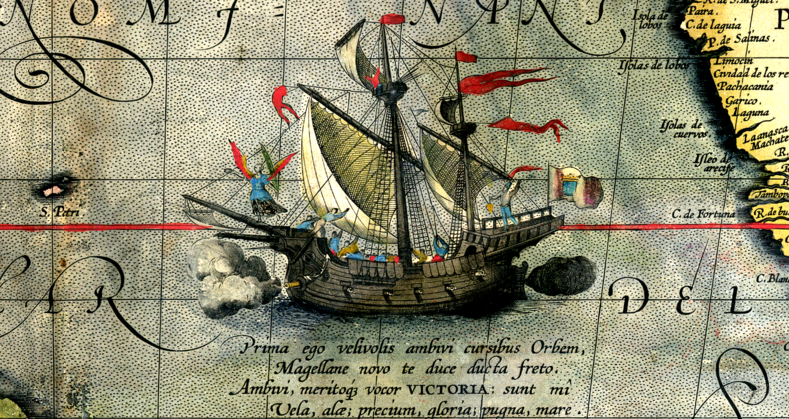 NOMI- NANT,
Isola de lobos
R. de S. Miguel.
Paita.
C. de laguia
P. de Salinas.
Isolas de lobos
Limocin
Cividad de los re
Pachacania
Garico.
Laguna
Isolas de cuervos.
Isleo de arecife
S. Petri.
C. de Fortuna
C. Blan
DEL
Prima ego velivolis ambivi cursibus Orbem,
Magellane novo te duce ducta freto.
Ambivi, meritoq₃ vocor VICTORIA: sunt mî
Vela, alæ; precium, gloria; pugna, mare.